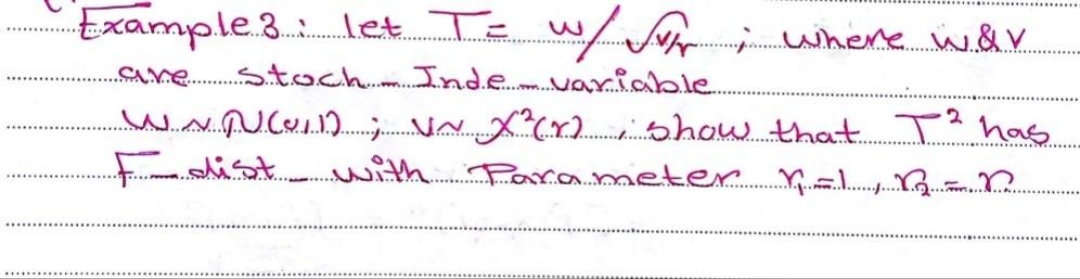 Example 3: let T = w/√v/r ; where w & v
are stoch - Inde - variable
W ~ N(0,1) ; V ~ X²(r) , show that T² has
F - dist - with Parameter r₁=1 , r₂ = r